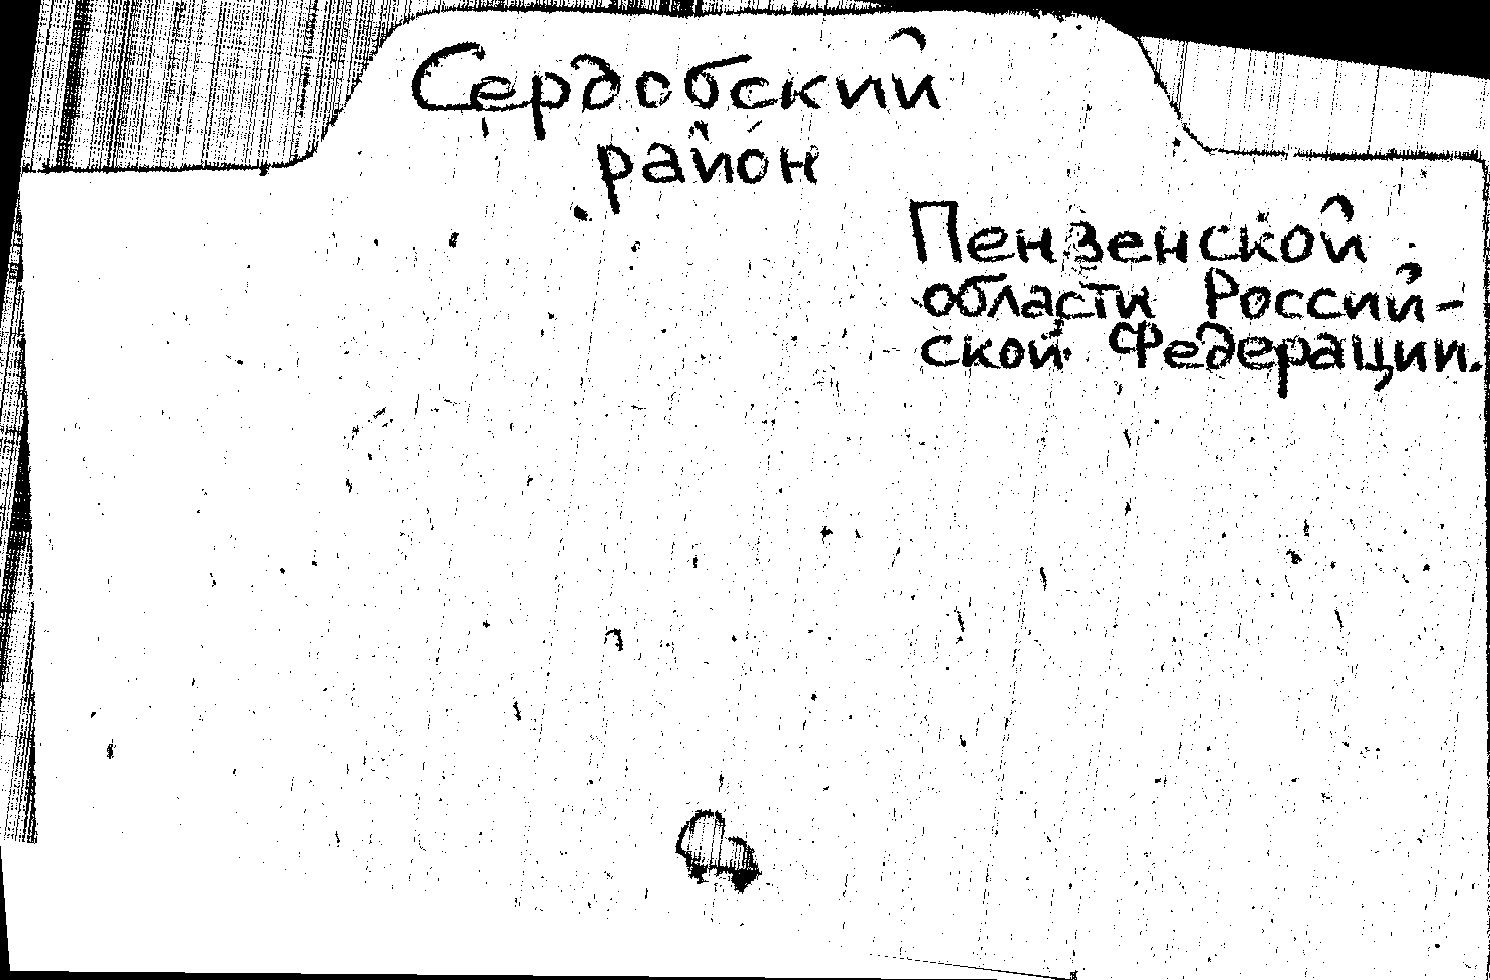 Сердобский
район
Пензенской
области Россий-
ской Федерации.